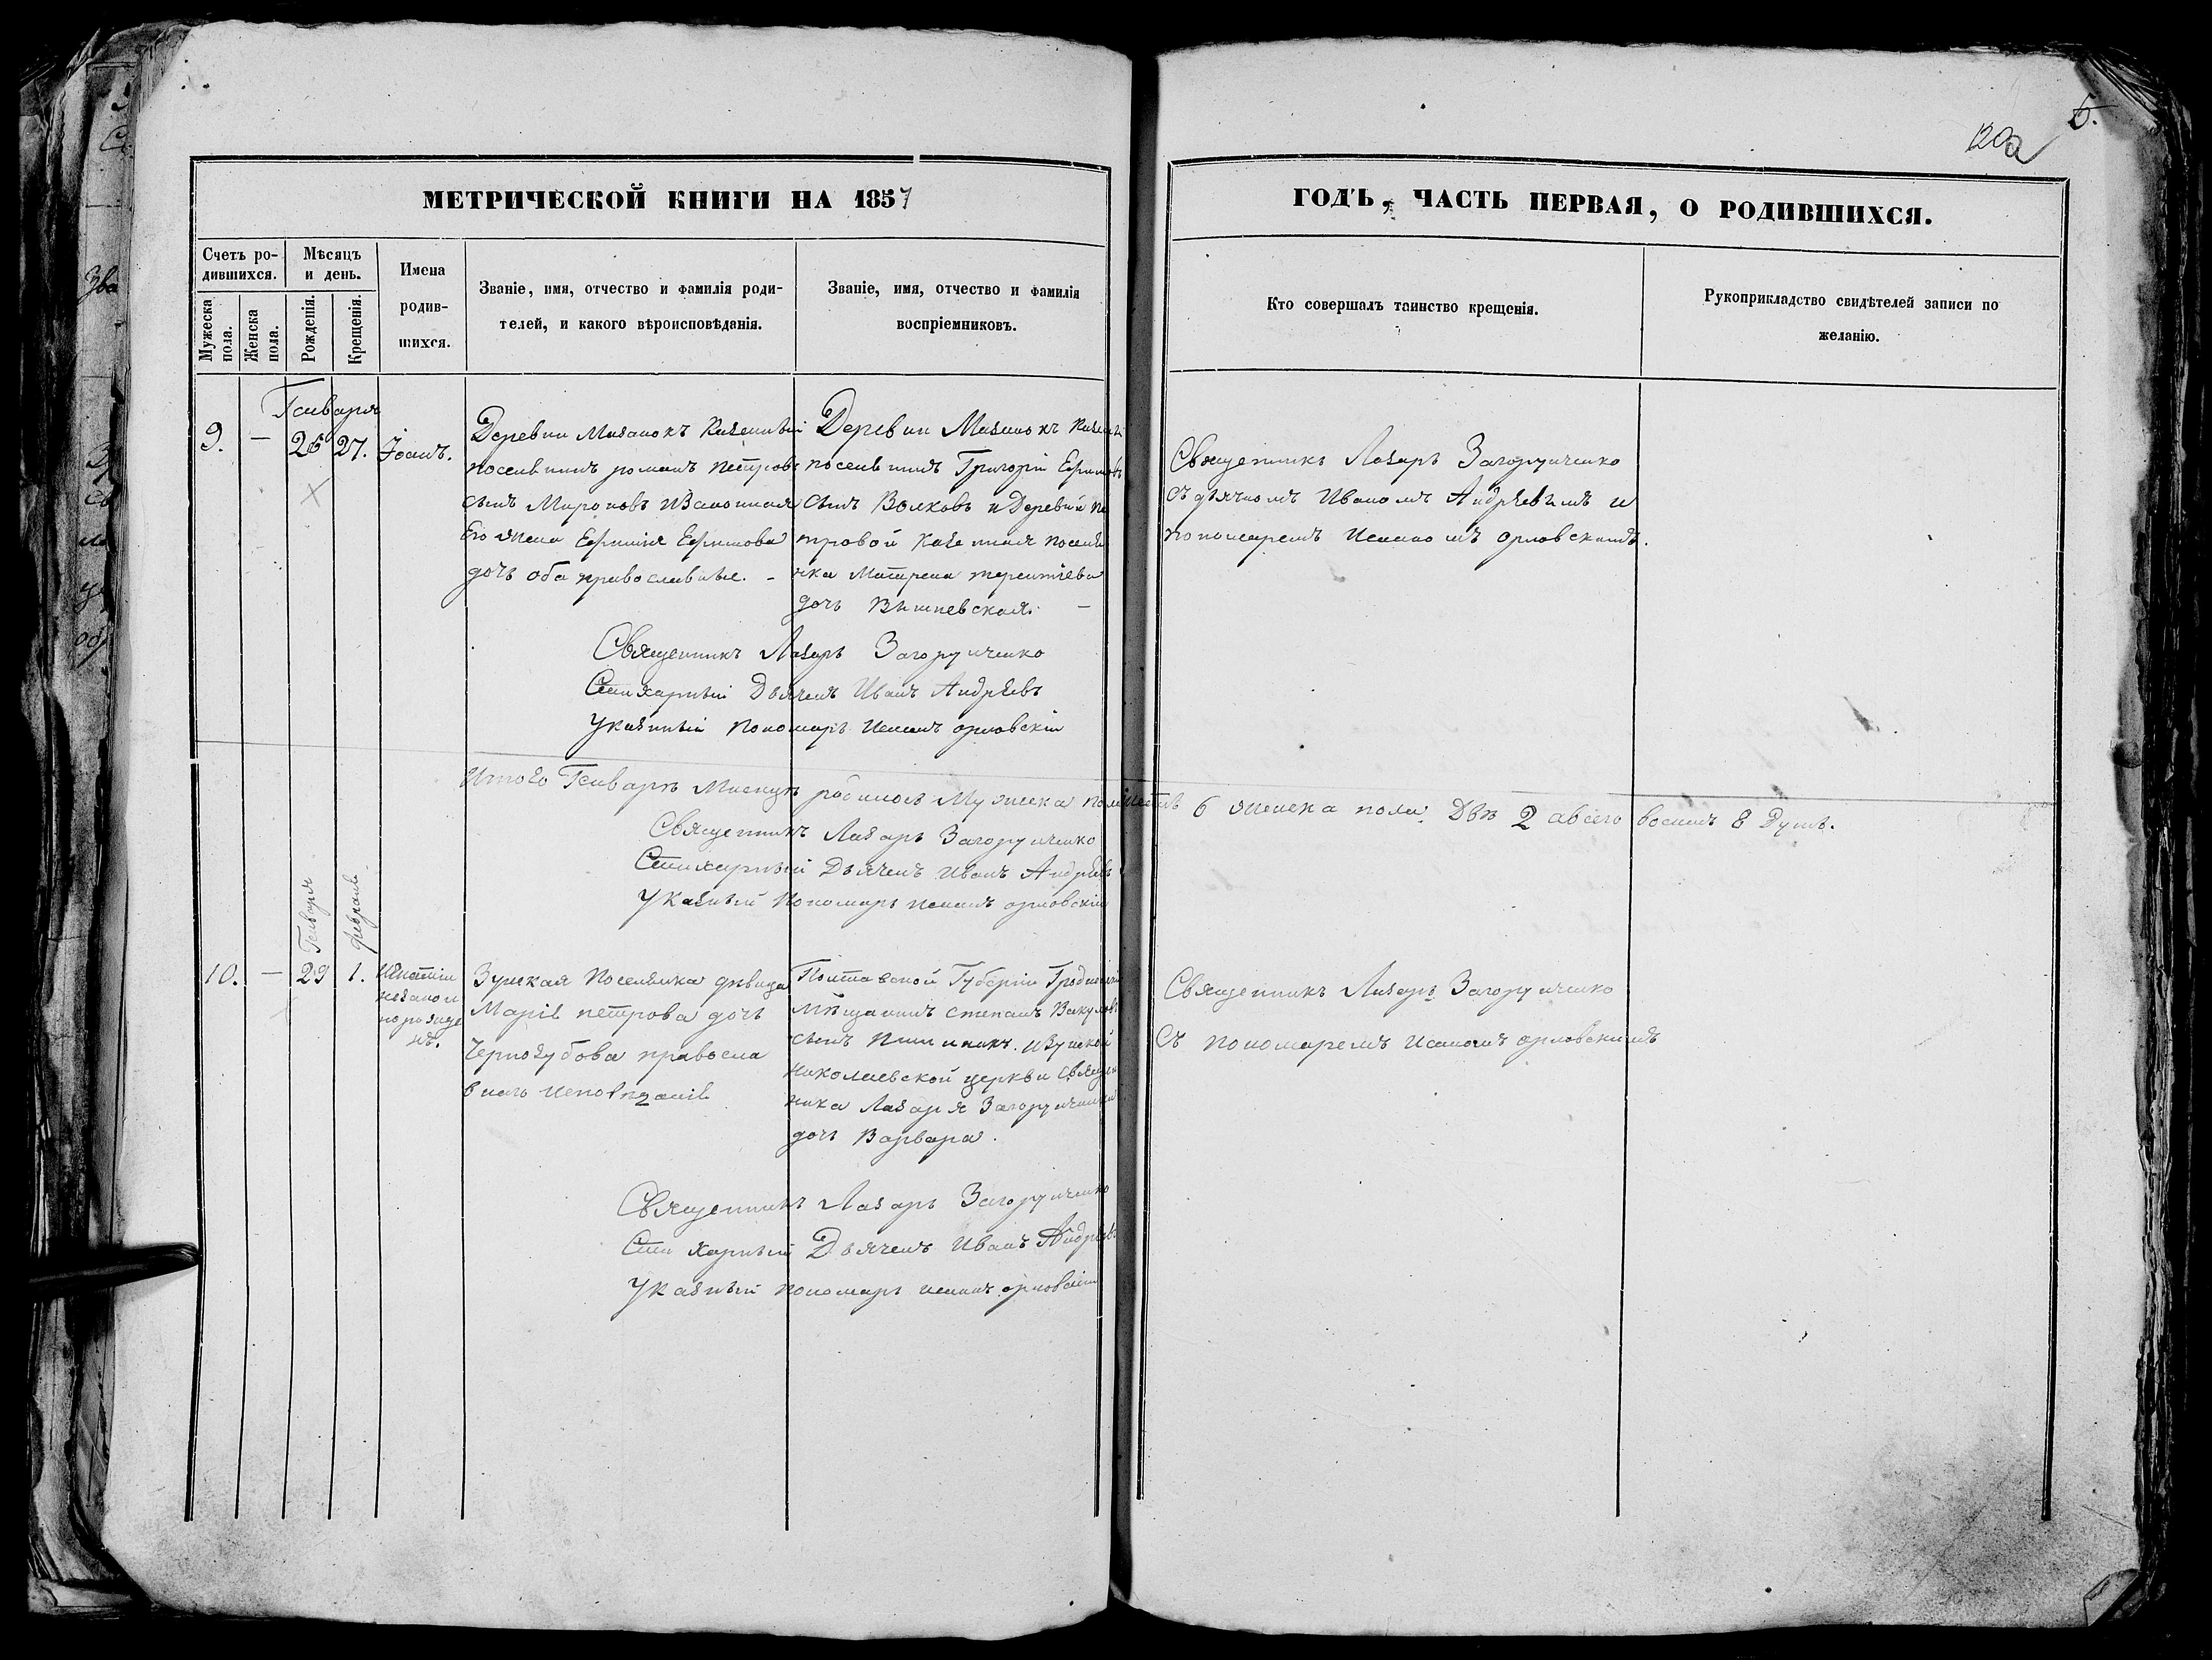 120а
5.
МЕТРИЧЕСКОЙ КНИГИ НА 1857
ГОДЪ, ЧАСТЬ ПЕРВАЯ, О РОДИВШИХСЯ.
Счетъ ро-
дившихся.
Мужеска
пола.
Женска
пола.
Мѣсяцъ
и день.
Рожденія.
Крещенія.
Имена
родив-
шихся.
Званіе, имя, отчество и фамилія роди-
телей, и какого вѣроисповѣданія.
Званіе, имя, отчество и фамилія
воспріемниковъ.
Кто совершалъ таинство крещенія.
Рукоприкладство свидѣтелей записи по
желанію.
Генваря
9. — 26 27. Іоанъ.
Деревни Мазанокъ Казенный
поселянинъ романъ Петровъ
сынъ Мироновъ изаконная
Его жена Ефимія Ефимова
дочь оба православные. –
Деревни Мазанокъ
поселянинъ Григорій Ефимовъ
сынъ Волковъ и Деревни Пе
тровой Казенная поселя
нка Матрена терентіева
дочь Вишневская. –
Священникъ Лазарь Загоруйченко
съ дьячкомъ Иваномъ Андрѣевымъ и
пономаремъ орловскимъ.
Священникъ Лазарь Загоруйченко
Стихарный Дьячекъ Иванъ Андрѣевъ
Указный Пономарь орловскій
Итого Генварѣ Месяцѣ родилось Мужеска пола шесть 6 женска пола Двѣ 2 авсего восемъ 8 Душъ.
Священникъ Лазарь Загоруйченко
Стихарный Дьячекъ Иванъ Андрѣевъ
Указный Пономарь орловскій
Генваря
февраля
10. — 29 1.
незакон
норожде
нъ.
поселянка девица
Марія петрова дочь
Чернозубова правосла
внаго исповѣданія
Полтавской Губерніи
Мѣщанинъ степанъ
сынъ
николаевской церкви Священ
ника Лазаря Загоруйченка
дочь Варвара.
Священникъ Лазарь Загоруйченко
Съ пономаремъ орловскимъ
Священникъ Лазарь Загоруйченко
Стихарный Дьячекъ Иванъ Андрѣевъ
Указный пономарь орловскій